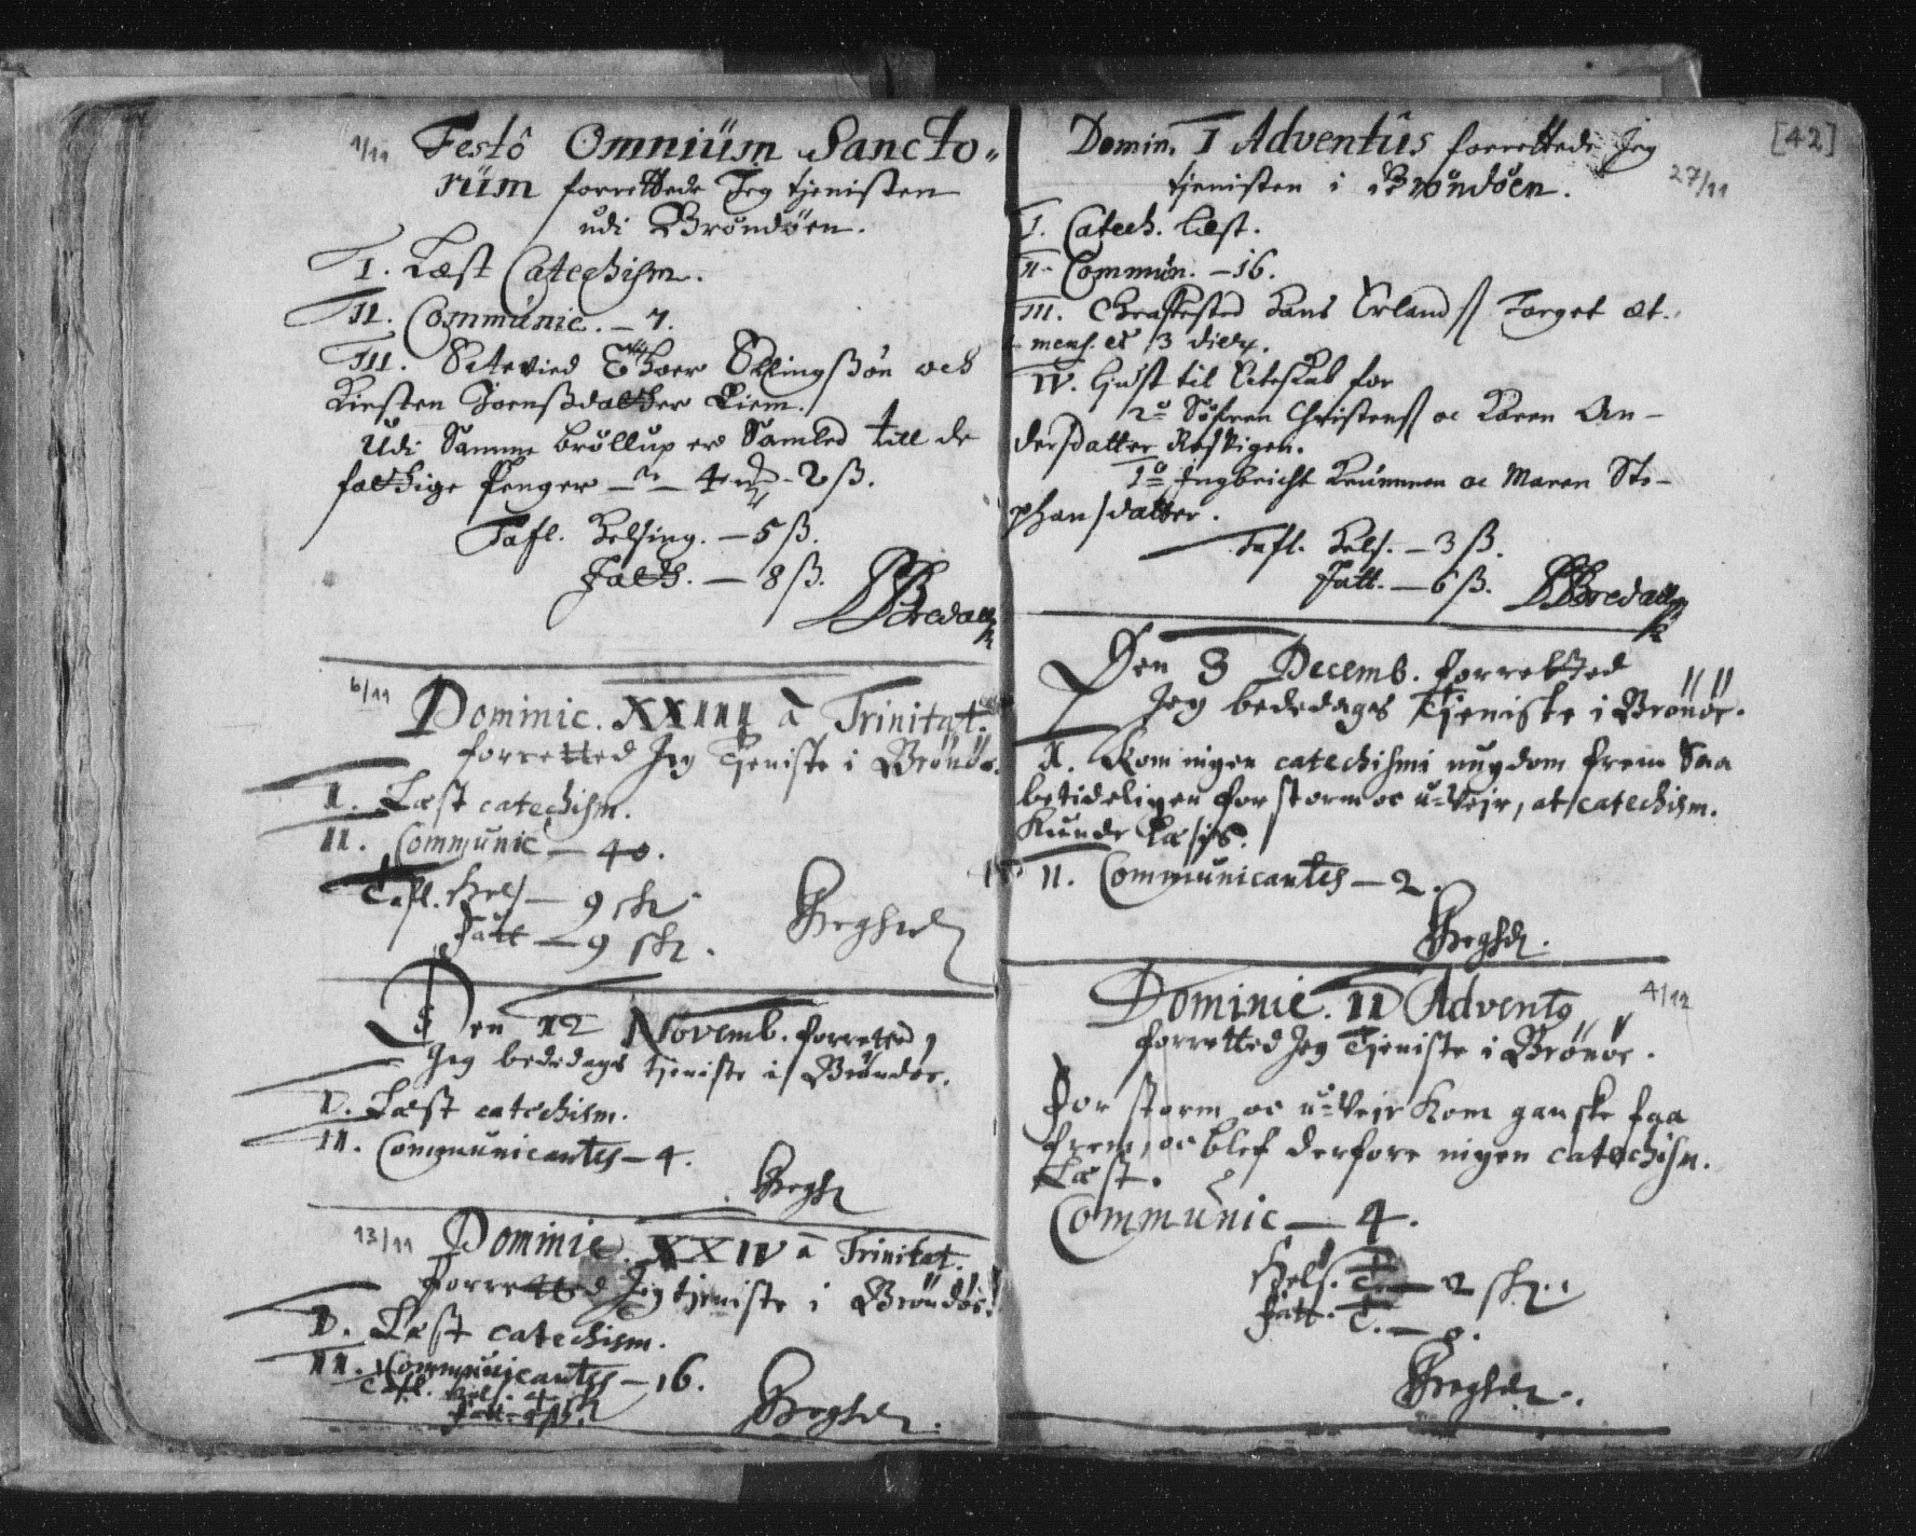 1/11 Festô Omniûm Sancto-
rûm forrettede Jeg tjenisten
udi Brøndøen.
I. Læst Catechism.
II. Communic. – 7.
III. Ectevied Ellingßøn och
Kirsten Joenßdatther Riem.
Udi Samme brøllup er Samled till de
fatthige Penger – 4 – 2 ß.
Tafl. Helsing. – 5 ß.
Fatth. – 8 ß. Bredall
6/11 Dominic. XXIII à Trinitat.
forretted Jeg Tjeniste i Brönöe.
I. Læst catechism.
II. Communic – 40.
Tafl. Hels – 9 sk
Fatt – 9 sk.
Den 12 Novemb. forretted
Jeg bededags tjeniste i Bröndöe.
I. Læst catechism.
II. Communicantes – 4.
13/11 Dominic. XXIV à Trinitat.
forretted Jeg tjeniste i Bröndöe.
I. Læst catechism.
II. Communicantes – 16.
Tafl. Hels. 4 sk
Fatt
[42]
Domin. I Adventûs forrettede Jeg
tjenisten i Brøndøen. 27/11
I. Catech. læst.
II. Commun. – 16.
III. Hans Erlands Torget æt.
mens. et 3 dier.
IV. liust til Ecteskab for
2º Søfren Christens oc Karen An-
dersdatter
1º Ingbricht Krummen oc Maren Ste-
phansdatter.
Tafl. Hels. – 3 ß.
Fatt. – 6 ß. Bredall
Den 3 Decemb. forretted
Jeg bededags Tjeniste i Brönöe.
I. Kom ingen catechismi ungdom frem Saa
betideligen for storm oc u-Veir, at catechism.
Kunde læsis.
II. Communicantes – 2.
Dominic. II Advento 4/12
forretted Jeg Tjeniste i Brönöe.
For storm oc u-Veir Kom ganske faa
frem, oc blef derfore ingen catechism.
Læst.
Communic – 4.
Hels. T. – 2 sk.
Fatt. T. –